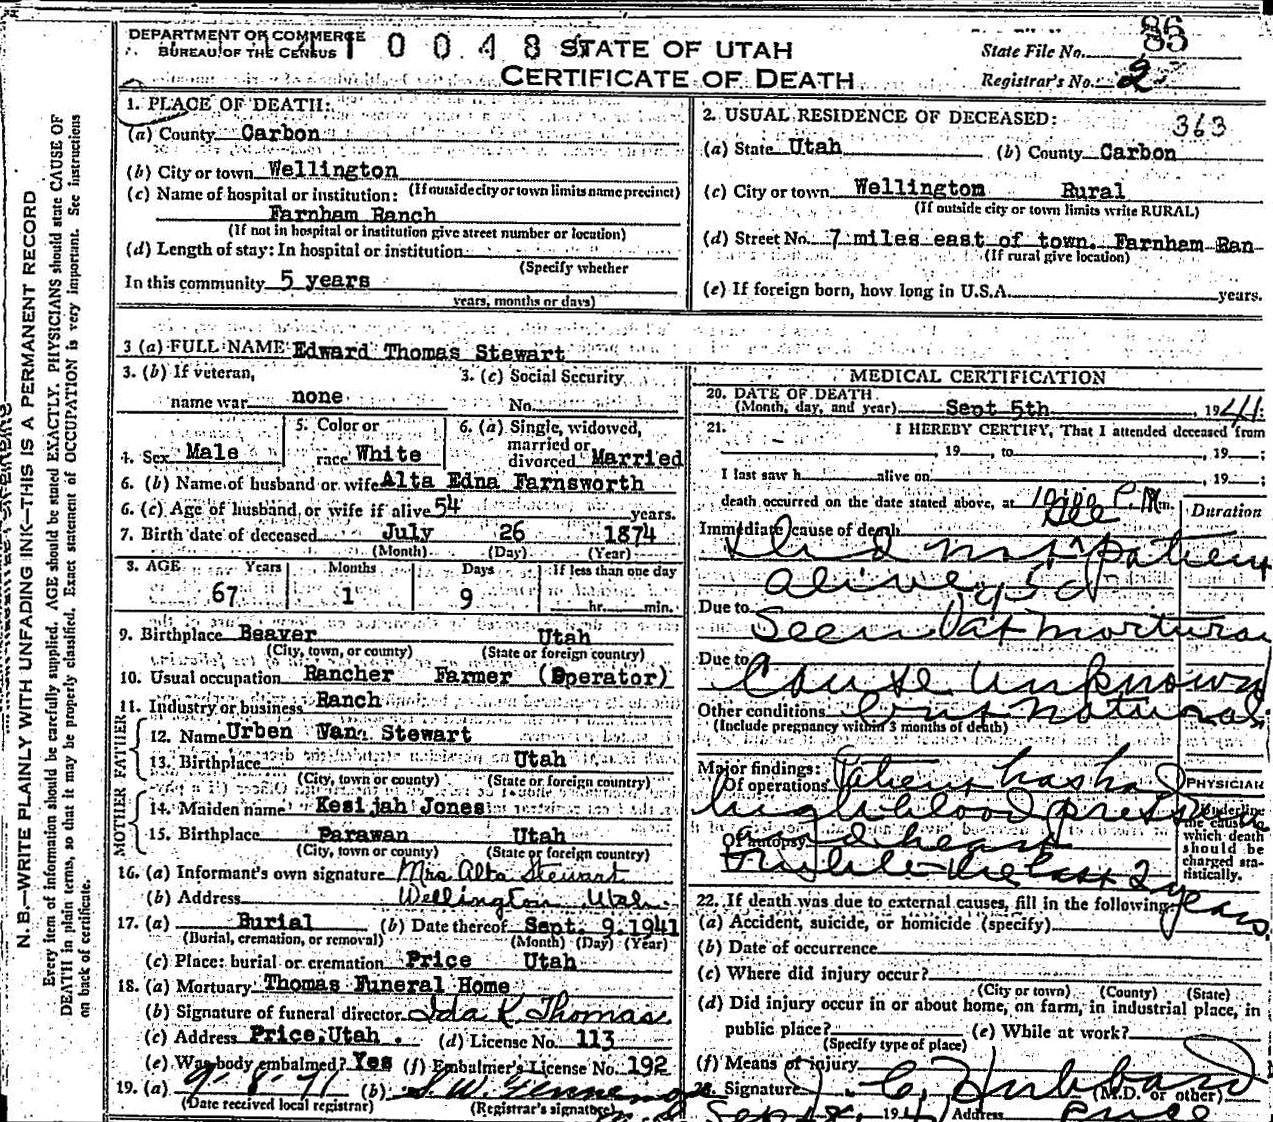 DEPARTMENT OF COMMERCE
BUREAU OF THE CENSUS
STATE OF UTAH
CERTIFICATE OF DEATH
State File No. 85
Registrar's No. 2
1. PLACE OF DEATH:
(a) County Carbon
(b) City or town Wellington
(If outside city or town limits name precinct)
(c) Name of hospital or institution:
Farnham Ranch
(If not in hospital or institution give street number or location)
(d) Length of stay: In hospital or institution
(Specify whether
In this community 5 years
years, months or days)
2. USUAL RESIDENCE OF DECEASED:
363
(a) State Utah (b) County Carbon
(c) City or town Wellington Rural
(If outside city or town limits write RURAL)
(d) Street No. 7 miles east of town. Farnham Ran
(If rural give location)
(e) If foreign born, how long in U.S.A. years.
3 (a) FULL NAME Edward Thomas Stewart
3. (b) If veteran,
name war none
3. (c) Social Security
No.
4. Sex Male
5. Color or
race White
6. (a) Single, widowed,
married or
divorced Married
6. (b) Name of husband or wife Alta Edna Farnsworth
6. (c) Age of husband or wife if alive 54 years.
7. Birth date of deceased July 26 1874
(Month) (Day) (Year)
8. AGE Years Months Days If less than one day
67 1 9 hr. min.
9. Birthplace Beaver Utah
(City, town, or county) (State or foreign country)
10. Usual occupation Rancher Farmer (Operator)
11. Industry or business Ranch
FATHER
12. Name Urben Van Stewart
13. Birthplace Utah
(City, town or county) (State or foreign country)
MOTHER
14. Maiden name Kesijah Jones
15. Birthplace Parawan Utah
(City, town or county) (State or foreign country)
16. (a) Informant's own signature Mrs Alta Stewart
(b) Address Wellington Utah.
17. (a) Burial (b) Date thereof Sept. 9.1941
(Burial, cremation, or removal) (Month) (Day) (Year)
(c) Place: burial or cremation Price Utah
18. (a) Mortuary Thomas Funeral Home
(b) Signature of funeral director Ida K Thomas
(c) Address Price, Utah. (d) License No. 113
(e) Was body embalmed? Yes (f) Embalmer's License No. 192
19. (a) 9-8-41 (b)
(Date received local registrar) (Registrar's signature)
MEDICAL CERTIFICATION
20. DATE OF DEATH
(Month, day, and year) Sept 5th, 1941.
21. I HEREBY CERTIFY, That I attended deceased from
, 19 , to , 19 ;
I last saw h alive on , 19 ;
death occurred on the date stated above, at P.M.
Duration
Immediate cause of death
Did not see patient
alive
Due to
Seen at mortuary
Due to
Cause unknown
Other conditions but natural
(Include pregnancy within 3 months of death)
Major findings:
Of operations Patient has had
high blood pressure
Of autopsy and heart
trouble the last 2 years
PHYSICIAN
Underline
the cause to
which death
should be
charged sta-
tistically.
22. If death was due to external causes, fill in the following:
(a) Accident, suicide, or homicide (specify)
(b) Date of occurrence
(c) Where did injury occur?
(City or town) (County) (State)
(d) Did injury occur in or about home, on farm, in industrial place, in
public place? (e) While at work?
(Specify type of place)
(f) Means of injury
Signature J. C. Hubbard
(M.D. or other)
Sept 8, 1941 Address Price
N. B.—WRITE PLAINLY WITH UNFADING INK—THIS IS A PERMANENT RECORD
Every item of information should be carefully supplied. AGE should be stated EXACTLY. PHYSICIANS should state CAUSE OF
DEATH in plain terms, so that it may be properly classified. Exact statement of OCCUPATION is very important. See instructions
on back of certificate.